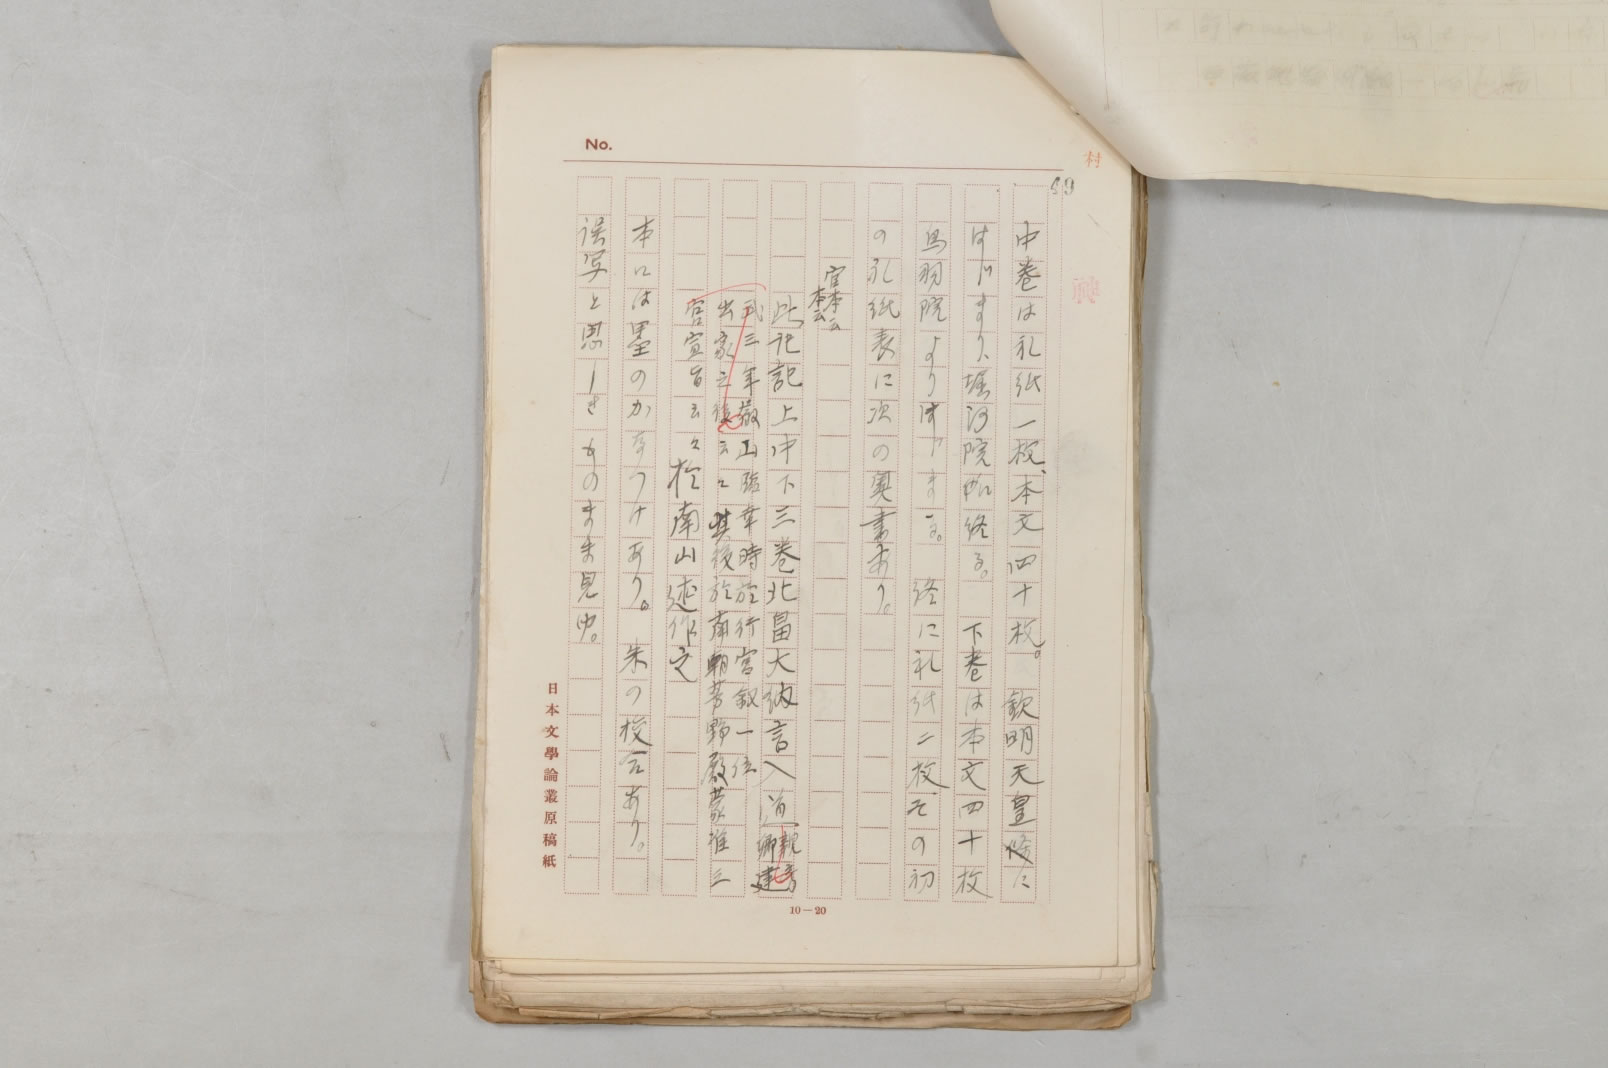 No.
村
49
中巻は礼紙一枚、本文四十枚。欽明天皇條に
はじまり、堀河院に終る。下巻は本文四十枚
鳥羽院よりはじまる。終に礼紙二枚、その初
の礼紙表に次の奥書あり。
官本云
本云
此記上中下三巻北畠大納言入道親房卿建
武三年叡山臨幸時於行宮叙一位
出家之後云々其後於南朝芳野殿蒙准三
宮宣旨云々於南山述作之
本には墨のかなつけあり。朱の校合あり。
誤写と思しきものまま見ゆ。
日本文學論叢原稿紙
10—20